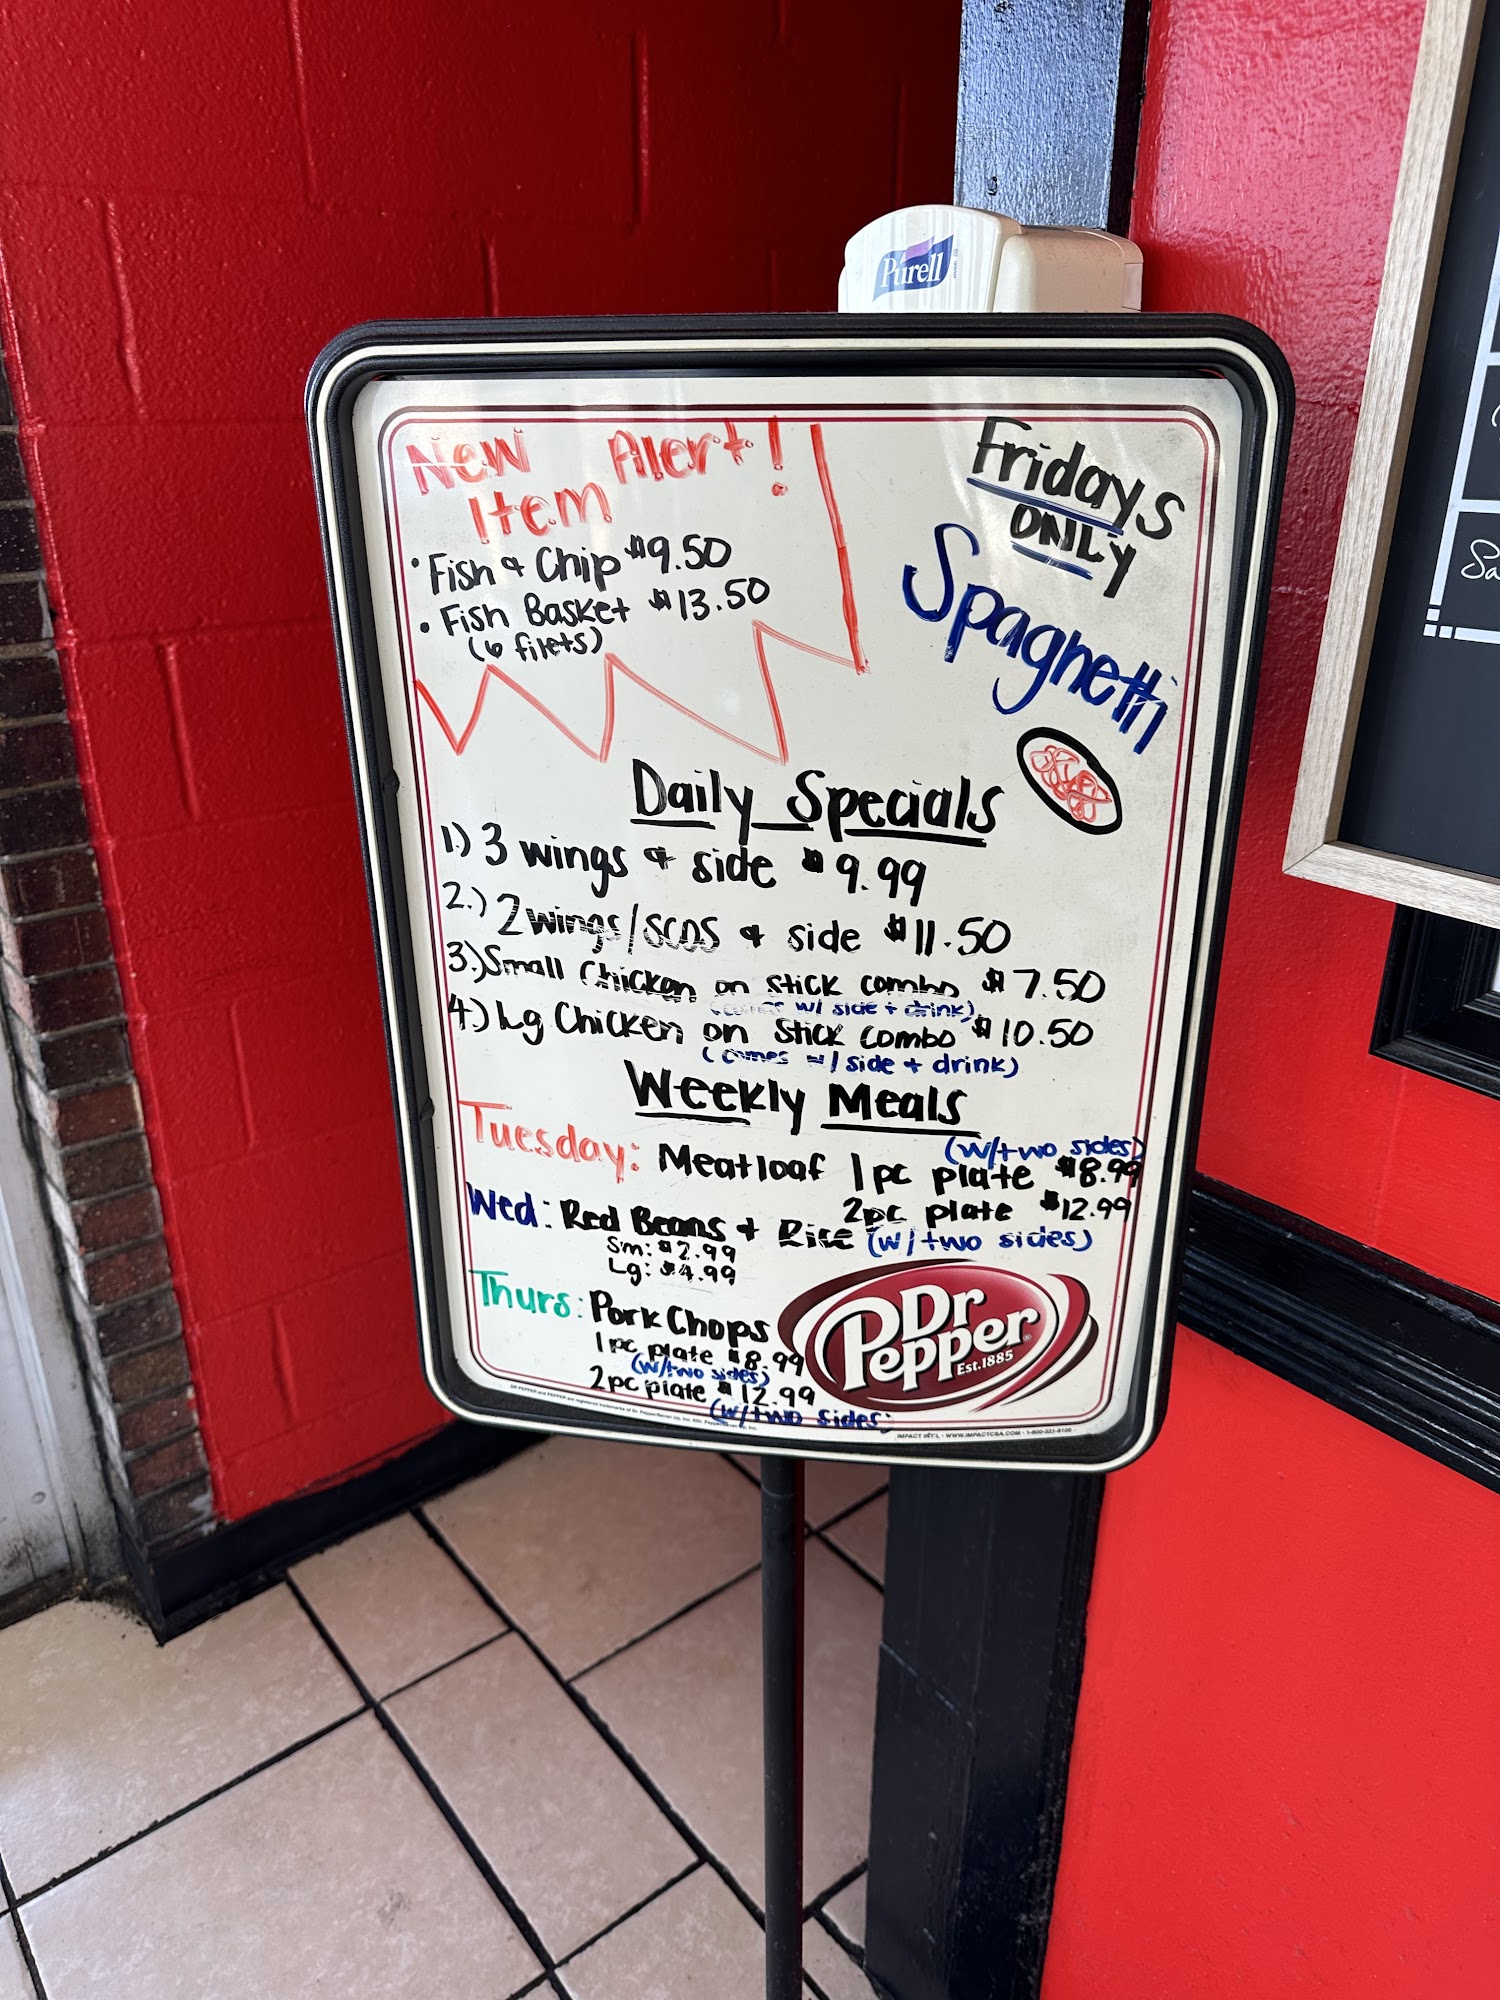 Purell
New Alert!
Item
• Fish & Chip $9.50
• Fish Basket $13.50
(6 filets)
Fridays
ONLY
Spaghetti
Daily Specials
1.) 3 wings & side $9.99
2.) 2 wings/SCDS & side $11.50
3.) Small Chicken on stick combo $7.50
(comes w/ side + drink)
4.) Lg Chicken on stick combo $10.50
(comes w/ side + drink)
Weekly Meals
(w/two sides)
Tuesday: Meatloaf 1pc plate $8.99
2pc plate $12.99
Wed: Red Beans + Rice (w/two sides)
Sm: $2.99
Lg: $4.99
Thurs: Pork Chops
1pc plate $8.99
(w/two sides)
2pc plate $12.99
(w/two sides)
Dr
Pepper
Est.1885
IMPACT INT'L • WWW.IMPACTCSA.COM
Sa